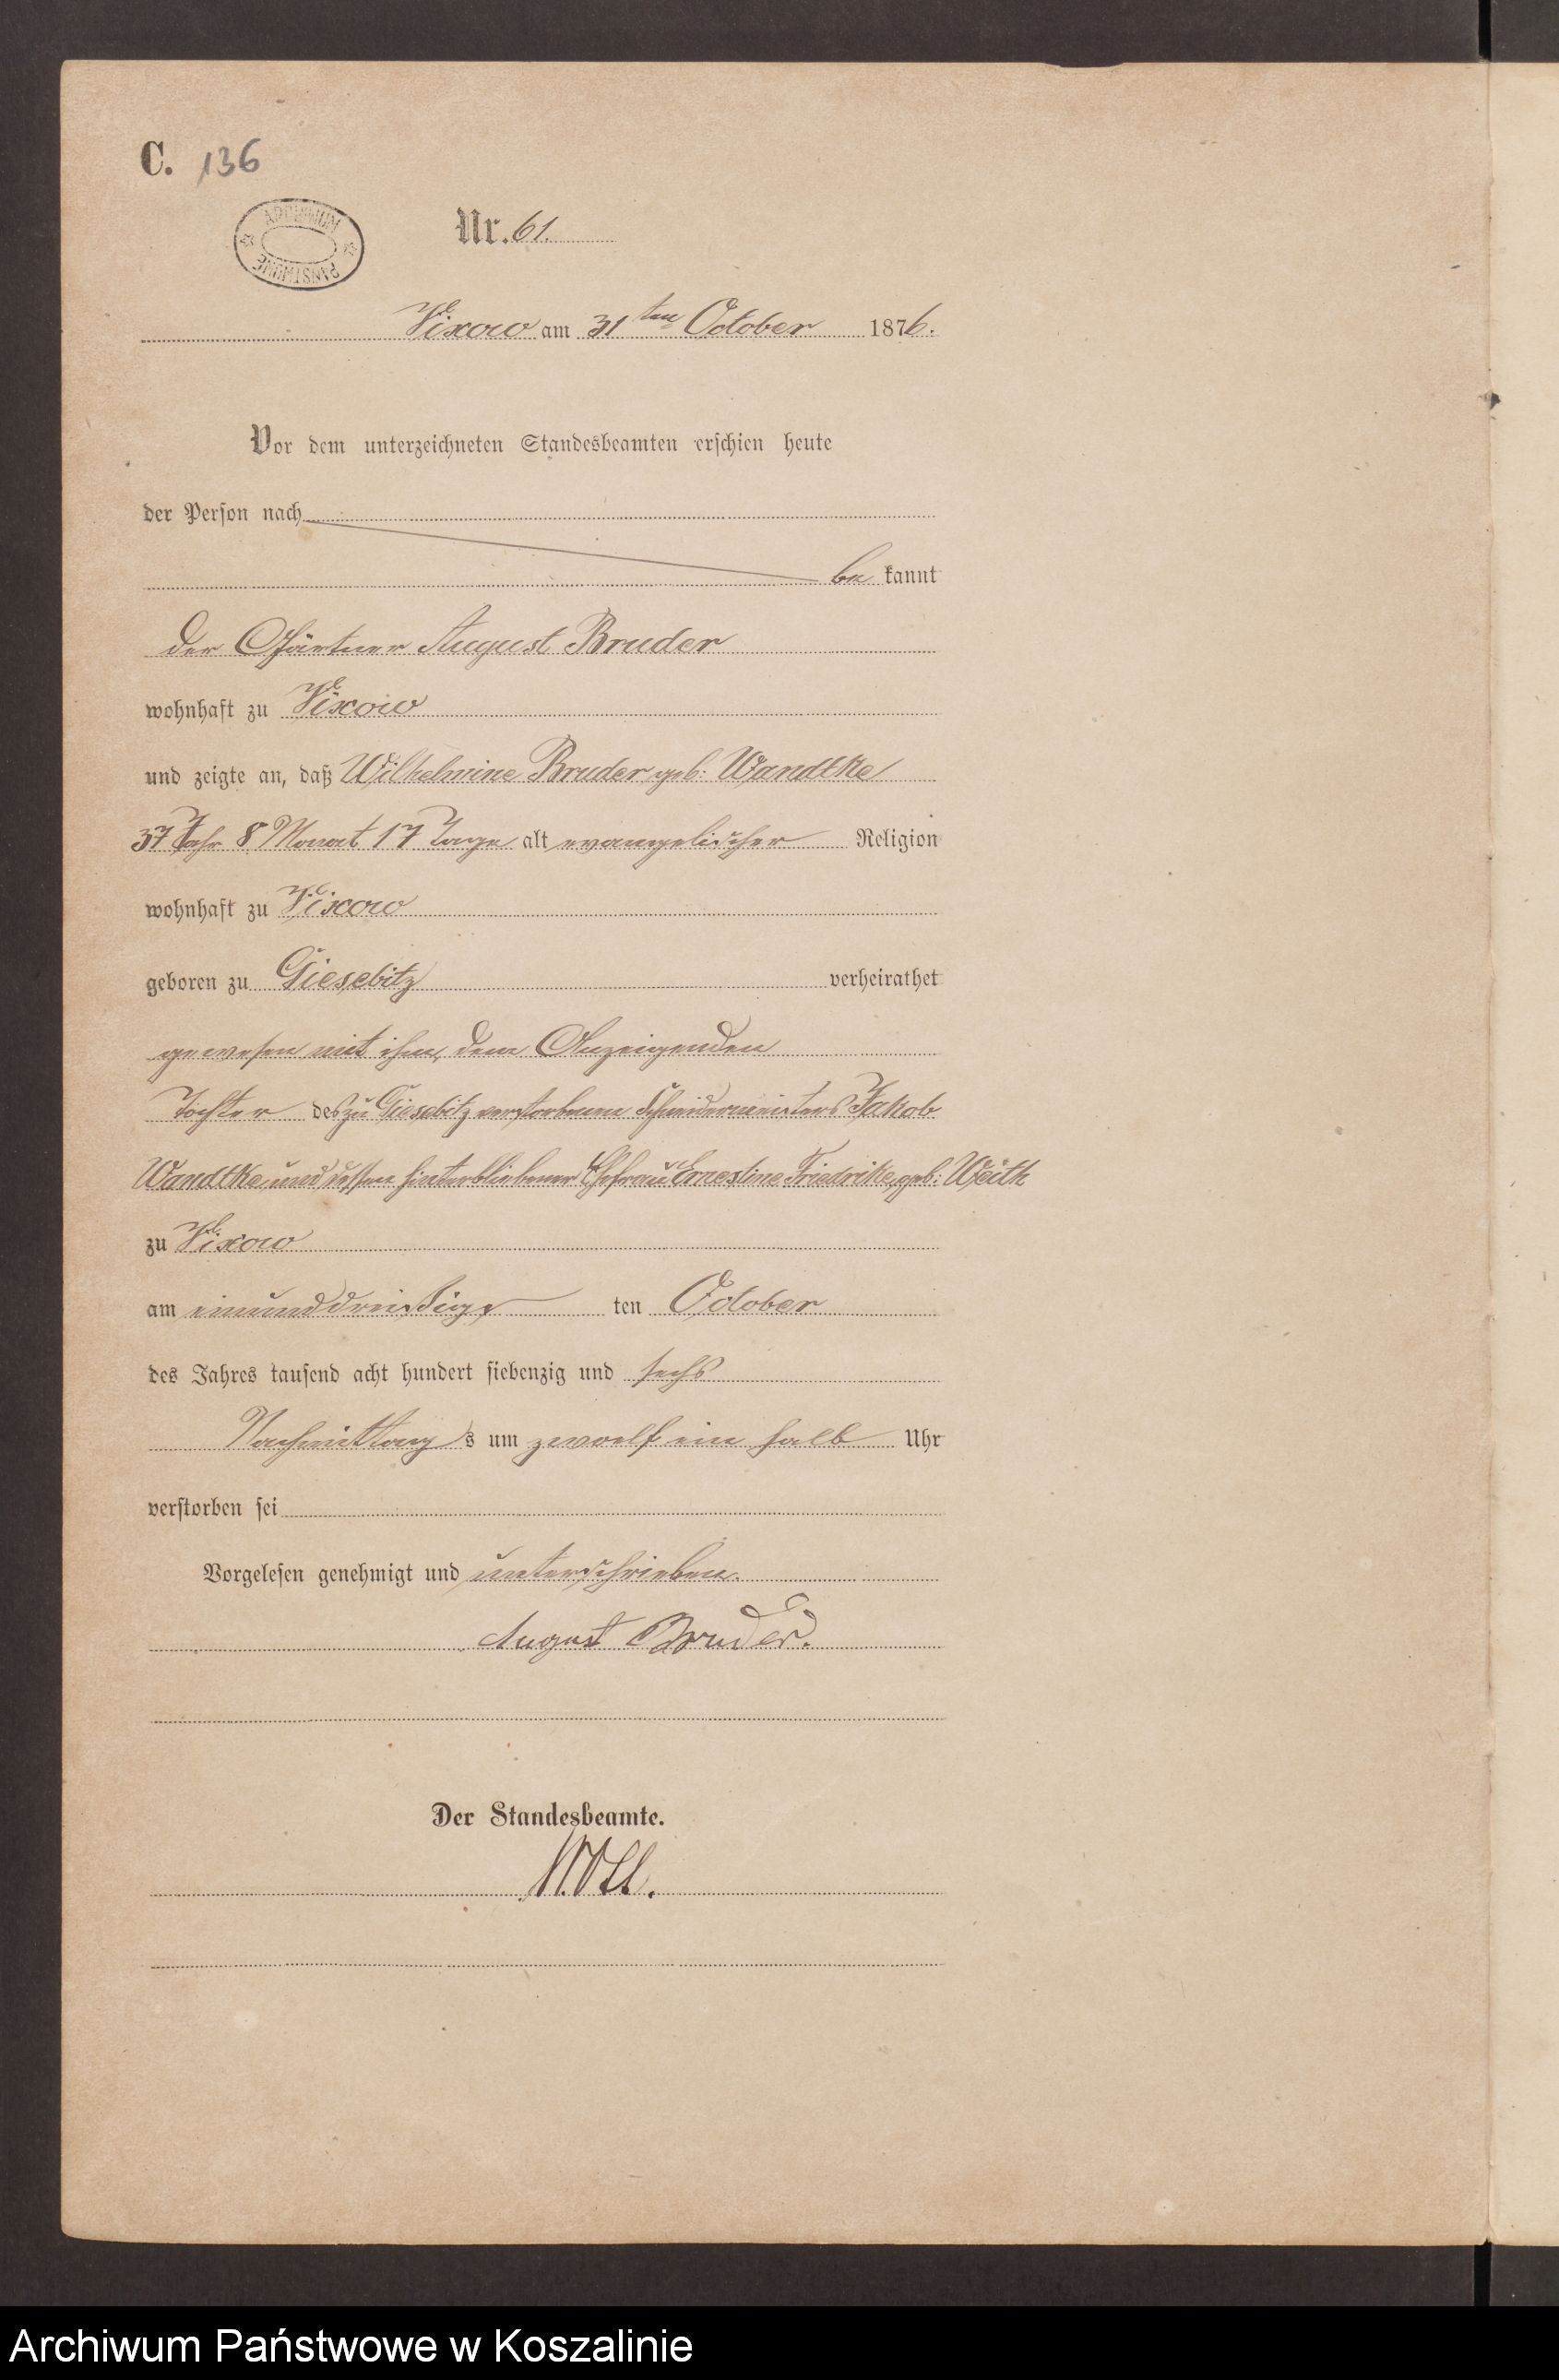 C. 136
ARCHIWUM PAŃSTWOWE
Nr. 61.
Vixow am 31ten October 1876.
Vor dem unterzeichneten Standesbeamten erschien heute
der Person nach
be kannt
der Gärtner August Bruder
wohnhaft zu Vixow
und zeigte an, daß Wilhelmine Bruder geb: Wandtke
37 Jahr 8 Monat 17 Tage alt evangelischer Religion
wohnhaft zu Vixow
geboren zu Giesebitz verheirathet
gewesen mit ihm, dem Anzeigenden
Tochter des zu Giesebitz verstorbenen Schneidermeisters Jakob
Wandtke und dessen hinterbliebener Ehefrau Ernestine Friedrike geb: Weith
zu Vixow
am einunddreißigs ten October
des Jahres tausend acht hundert siebenzig und sechs
Nachmittag s um zwoelf ein halb Uhr
verstorben sei
Vorgelesen genehmigt und unterschrieben.
August Bruder.
Der Standesbeamte.
Archiwum Państwowe w Koszalinie